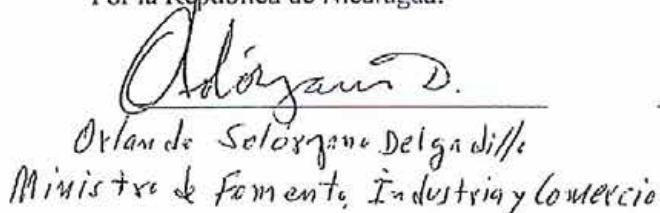 Por la República de Nicaragua:
Orlando Solórzano Delgadillo
Ministro de Fomento, Industria y Comercio